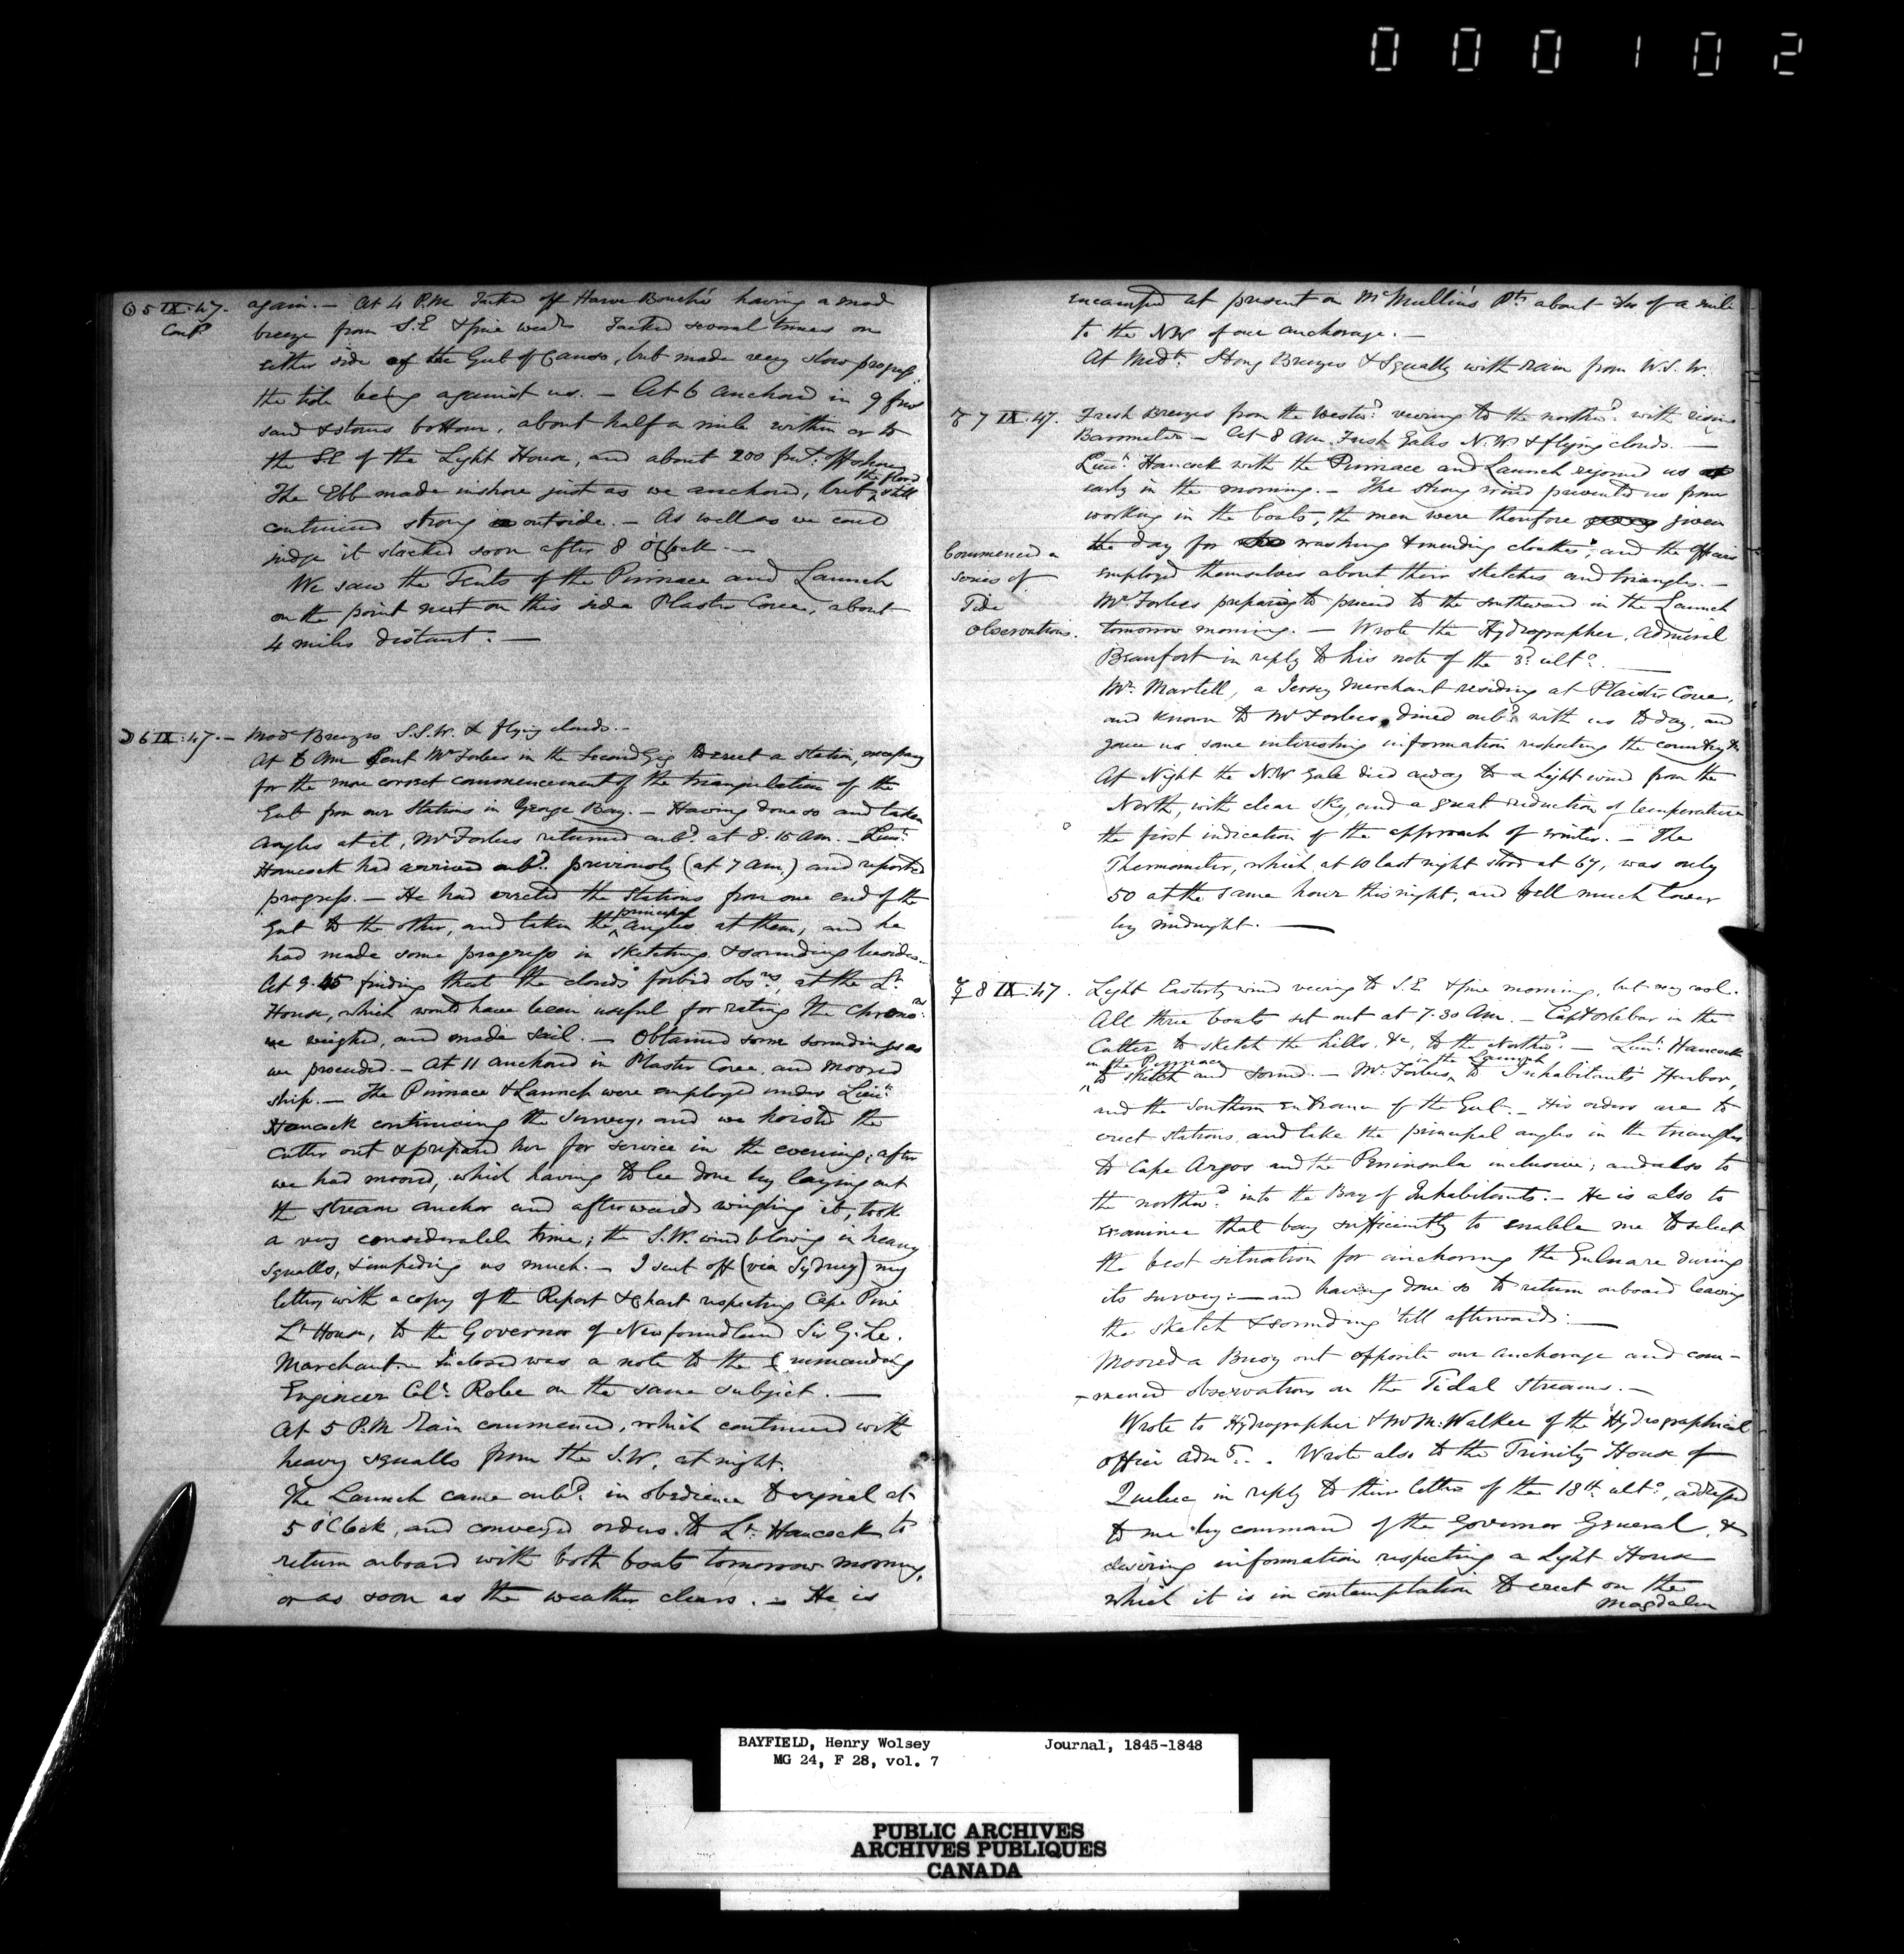 000102
☉ 5 IX. 47. again. — At 4 P.M. Tacked off Havre Bouché having a mod
Contd breeze from S.E & fine wear Tacked several times on
either side of the Gut of Canso, but made very slow progress
the tide being against us. — At 6 anchored in 9 fms
sand & stones bottom, about half a mile within or to
the S.E of the Light House, and about 200 fms: off shore
The Ebb made inshore just as we anchored, but the flood still
continued strong outside. — As well as we could
judge it slacked soon after 8 o'Clock. —
We saw the Tents of the Pinnace and Launch
on the point next on this side Plaster Cove, about
4 miles distant. —
☽ 6 IX. 47. — Mod Breezes S.S.W. & flying clouds. —
At 6 AM Sent Mr Forbes in the Second Gig to erect a station, necessary
for the more correct commencement of the triangulation of the
Gut from our Stations in George Bay. — Having done so and taken
angles at it, Mr Forbes returned onbd. at 8.15 AM. — Lieut.
Hancock had arrived onbd. previously (at 7 am.) and reported
progress. — He had erected the Stations from one end of the
Gut to the other, and taken the principal angles at them, and he
had made some progress in sketching & sounding besides. —
At 9.45 finding that the clouds forbid obsns, at the Lt
House, which would have been useful for rating the Chronors
we weighed, and made sail. — Obtained some soundings as
we proceeded. — At 11 anchored in Plaster Cove, and moored
ship. — The Pinnace & Launch were employed under Lieut
Hancock continuing the Survey, and we hoisted the
Cutter out & prepared her for service in the evening; after
we had moored, which having to be done by laying out
the stream anchor and afterwards weighing it, took
a very considerable time; the S.W. wind blowing in heavy
squalls, & impeding us much. — I sent off (via Sydney) my
letter with a copy of the Report & Chart respecting Cape Pine
Lt House, to the Governor of Newfoundland Sir G. Le.
Marchant. Inclosed was a note to the Commanding
Engineer Col. Robe on the same subject. —
At 5 P.M. Rain commenced, which continued with
heavy squalls from the S.W. at night.
The Launch came onbd. in obedience to signal at
5 o'Clock, and conveyed orders to Lt. Hancock to
return onboard with both boats tomorrow morning,
or as soon as the weather clears. — He is
encamped at present on McMullin's Pt about 3/4 of a mile
to the NW of our anchorage. —
At Midt. Strong Breezes & Squally with rain from W.S.W.
♂ 7 IX. 47. Fresh Breezes from the westwd. veering to the northd. with rising
Barometer. — At 8 AM. Fresh Gales N.W & flying clouds. —
Lieut. Hancock with the Pinnace and Launch rejoined us
early in the morning. — The strong wind prevented us from
working in the boats, the men were therefore given
the day for washing & mending cloathes, and the officers
Commenced a
series of
Tide
observations.
employed themselves about their sketches and triangles. —
Mr. Forbes preparing to proceed to the southward in the Launch
tomorrow morning. — Wrote the Hydrographer, Admiral
Beaufort in reply to his note of the 3d. ulto. —
Mr. Martell, a Jersey Merchant residing at Plaister Cove,
and known to Mr Forbes, dined onbd. with us today, and
gave us some interesting information respecting the country &c
At Night the N.W Gale died away to a light wind from the
North, with clear sky, and a great reduction of temperature
the first indication of the approach of winter. — The
Thermometer, which at 10 last night stood at 67, was only
50 at the same hour this night, and fell much lower
by midnight. —
☿ 8 IX. 47. Light Easterly wind veering to S.E & fine morning, but very cool.
All three boats set out at 7.30 AM. — Capt Orlebar in the
Cutter to sketch the hills &c, to the Northd. — Lieut. Hancock
in the Pinnace to sketch and sound. — Mr. Forbes, in the Launch to Inhabitants Harbor,
and the Southern Entrance of the Gut. — His orders are to
erect stations, and take the principal angles in the triangles
to Cape Argos and the Peninsula inclusive; and also to
the northwd. into the Bay of Inhabitants. — He is also to
examine that bay sufficiently to enable me to select
the best situation for anchoring the Gulnare during
its survey: — and having done so to return onboard leaving
the sketch & sounding 'till afterwards. —
Moored a Buoy out opposite our anchorage and com-
-menced observations on the Tidal Streams. —
Wrote to Hydrographer & Mr M. Walker of the Hydrographical
office Admty. . Wrote also to the Trinity House of
Quebec, in reply to their letter of the 18th ulto., addressed
to me by command of the Governor General, &
desiring information respecting a Light House
which it is in contemplation to erect on the
Magdalen
BAYFIELD, Henry Wolsey Journal, 1845-1848
MG 24, F 28, vol. 7
PUBLIC ARCHIVES
ARCHIVES PUBLIQUES
CANADA